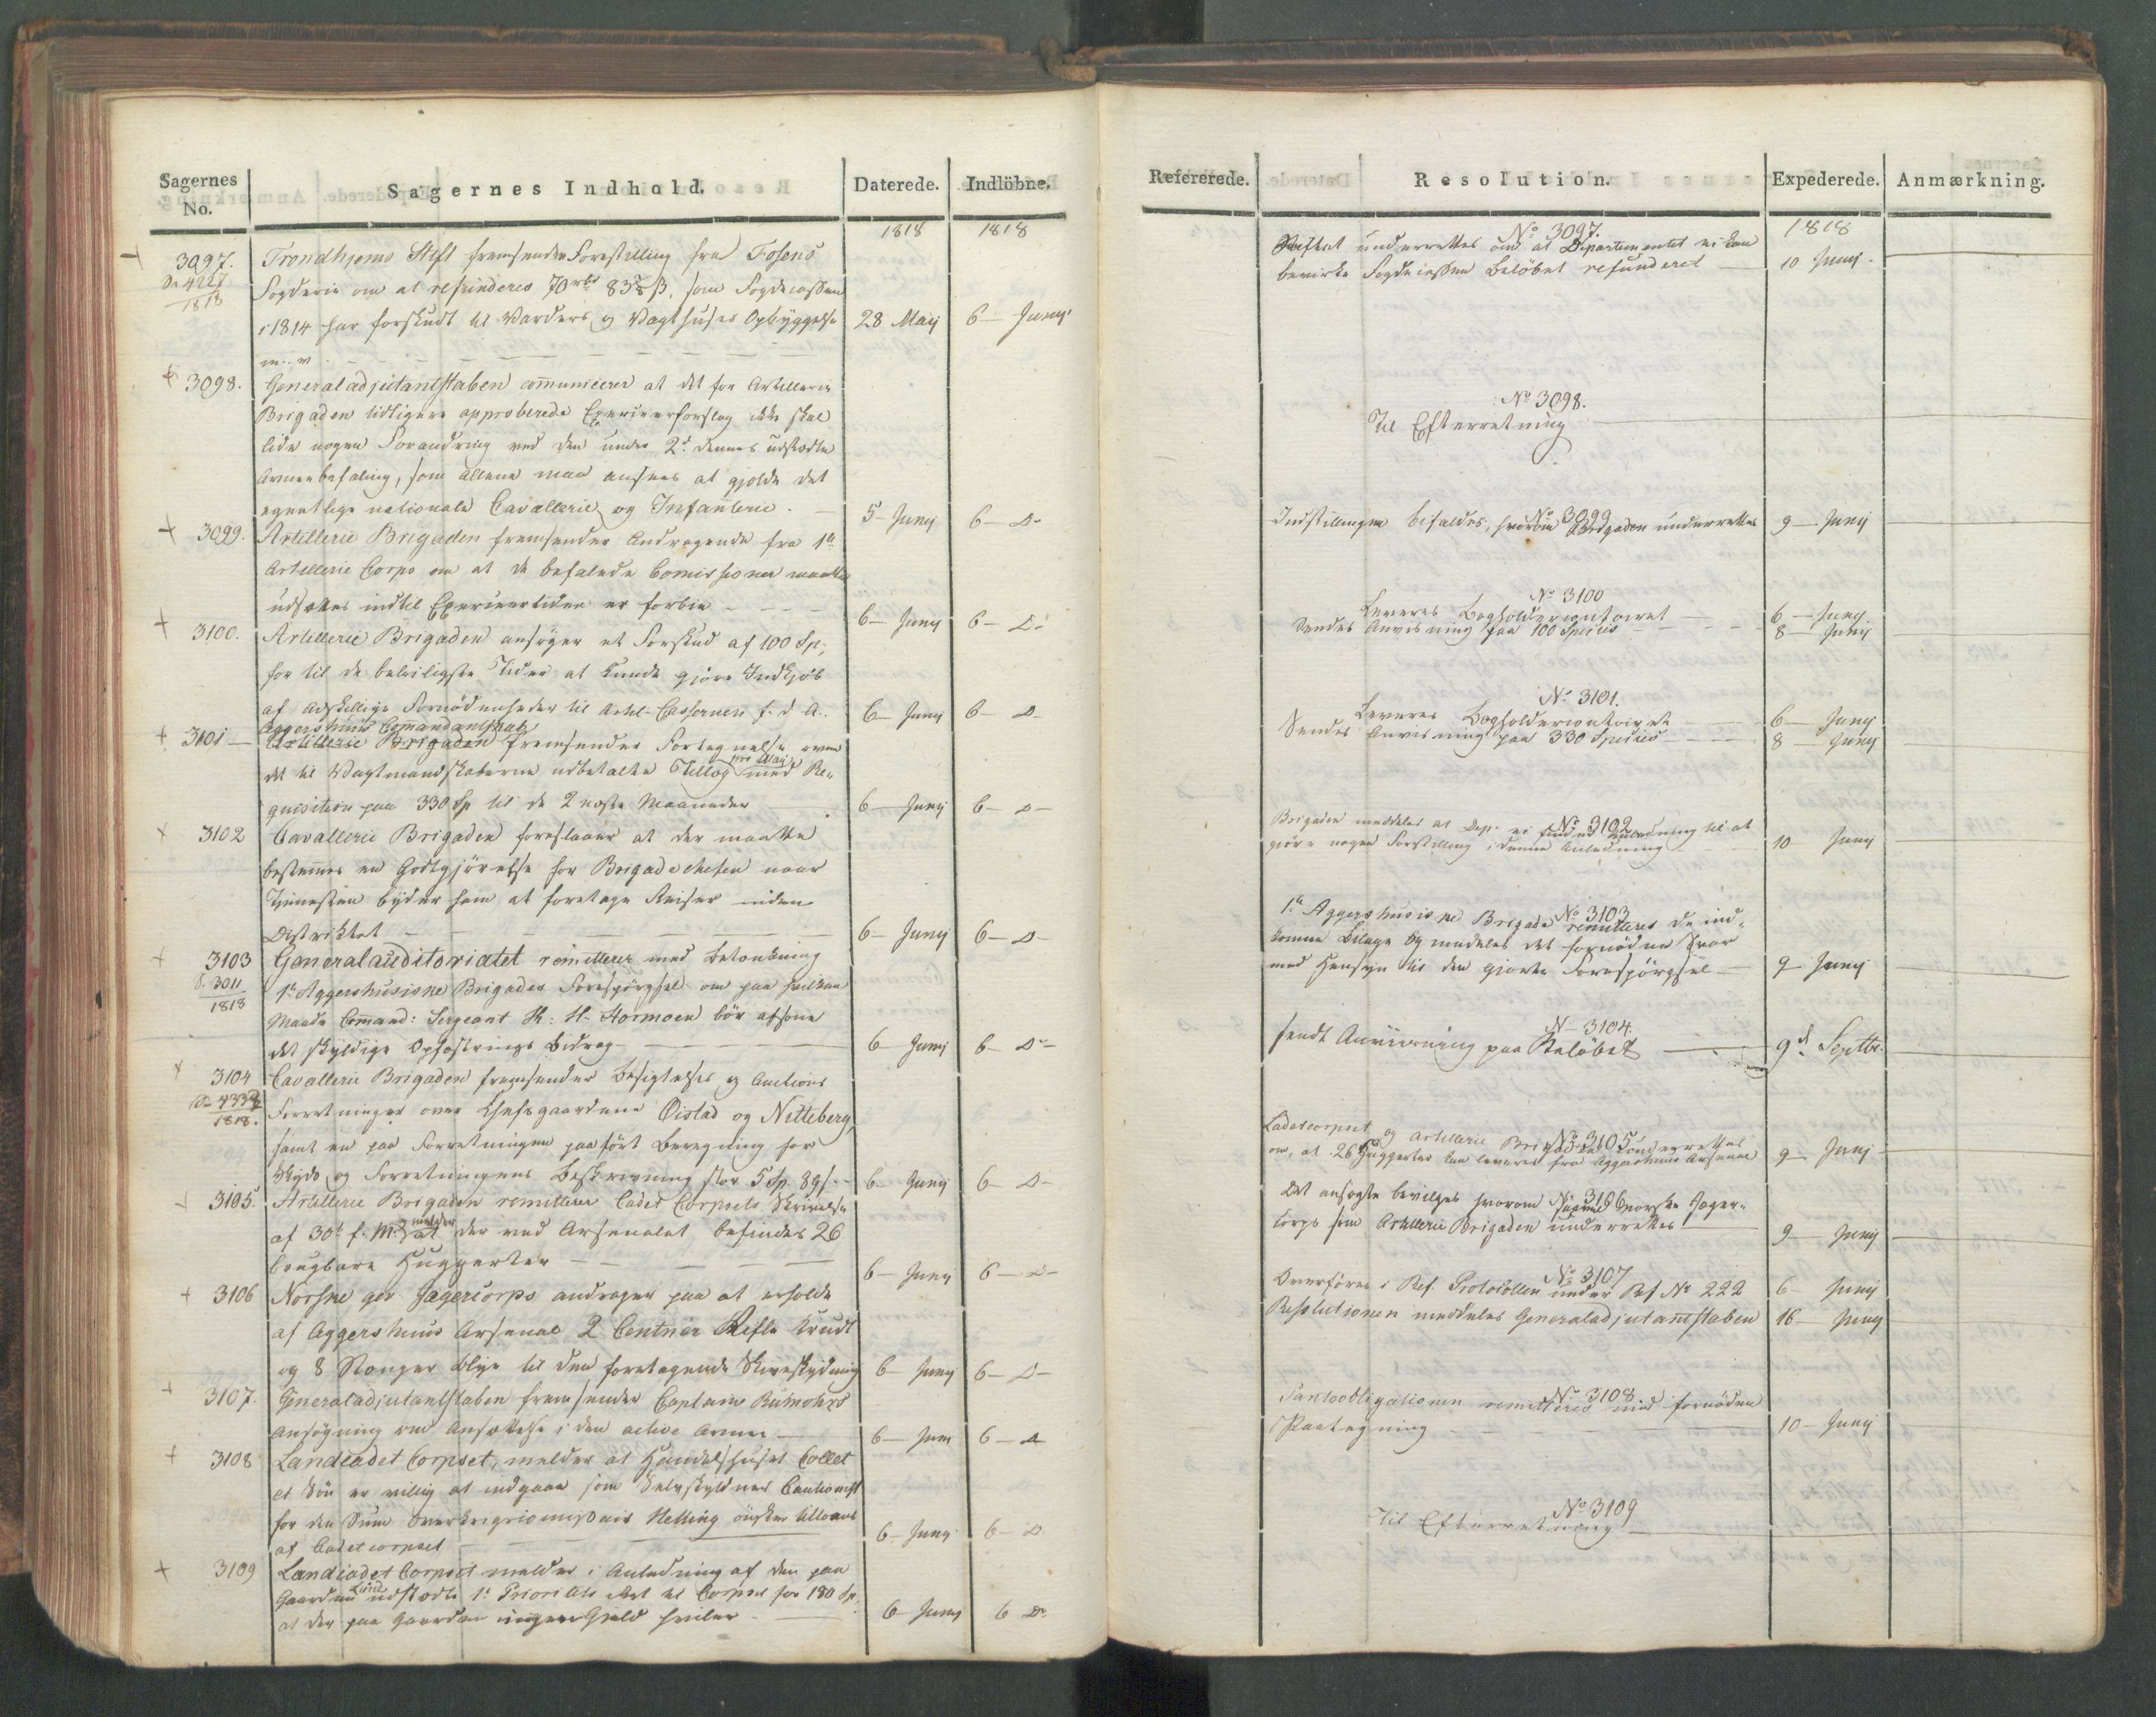 Sagernes No.
Sagernes Indhold.
Daterede.
Indlöbne.
1818
1818
3097.
Dr 4227
1818
Trondhjems Stift fremsender Forestilling fra Fosens
Fogderie om at refunderes 70 rbd 83⅞ ß, som Fogdecassen
i 1814 har forskudt til Varders og Vagthuses Opbyggelse
m. v.
28 Maij
6 - Junij
3098.
Generaladjutantstaben communicerer at det for Artillerie
Brigaden tidligere approberede Exerceerforslag ikke skal
lide nogen Forandring ved den under 2d dennes udstædte
Armeebefaling, som allene maa ansees at gjelde det
egentlige nationale Cavallerie og Infanterie.
5 - Junij
6 - D
3099.
Artillerie Brigaden fremsender Andragende fra 1te
Artillerie Corps om at de befalede Comissioner maatte
udsættes indtil Exerceertiden er forbie
6 - Junij
6 - D
3100.
Artillerie Brigaden ansöger et Forskud af 100 Sp:
for til de beleiligste Tider at kunde gjöre Indkjöb
af adskillige Fornödenheder til Artl. Casernen f. d. A.
6 - Junij
6 - D
3101
Aggershuus Comandantskab
Artillerie Brigaden fremsender Fortegnelse over
det til Vagtmandskaberne udbetalte Tillæg pro Maij med Re-
quisition paa 330 Sp til de 2 næste Maaneder
6 - Junij
6 - D
3102
Cavallerie Brigaden foreslaaer at der maatte
bestemmes en Godtgjörelse for Brigadechefen naar
Tjenesten byder ham at foretage Reiser inden
Distriktet
6 - Junij
6 - D
3103
S. 3011
1818
Generalauditoriatet remitterer med Betænkning
1te Aggershusiske Brigades Forespörgsel om paa hvilken
Maade Comand: Sergeant H. H. Hormoen bör afsone
det skyldige Opfostrings Bidrag
6 - Junij
6 - D
3104
Dr 4332
1818.
Cavallerie Brigaden fremsender Besigtelses og Auctions
Forretninger over Chefsgaardene Öistad og Nitteberg,
samt en paa Forretningen paafört Beregning for
Skyds og Forretningens Beskrivning stor 5 Sp. 89 ß
6 - Junij
6 - D
3105.
Artillerie Brigaden remitterer Cadet Corpsets Skrivelse
af 30t f. M. og melder at der ved Arsenalet befindes 26
brugbare Huggerter
6 - Junij
6 - D
3106
Norske Jægercorps andrager paa at erholde
af Aggershuus Arsenal 2 Centner Rifle Krudt
og 8 Stænger Blye til den foretagende Skiveskydning
6 - Junij
6 - D
3107.
Generaladjutantstaben fremsender Captain Rumohrs
Ansögning om Ansættelse i den active Armee
6 - Juni
6 - D
3108
Landcadet Corpset, melder at Handelshuset Collet
et Sön er villig at indgaae som Selvskyldner Cautionist
for den Sum Overkrigscommissair Helling önsker tillaans
af Cadetcorpset
6 - Junij
6 - D
3109
Landcadet Corpset melder i Anledning af den paa
Gaarden Lund udstædte 1t Prioritets til Corpset for 180 Sp.
at der paa Gaarden ingen Gjeld hviler
6 - Junij
6 D
Refererede.
Resolution.
Expederede.
Anmærkning.
1818
No 3097.
Stiftet underrettes om at Departementet ei kan
bevirke Fogdecassen Belöbet refunderet
10 Junij
No 3098.
Til Efterretning
No 3099
Indstillingen bifaldes, hvorom Brigaden underrettes
9 - Junij
No 3100
Leveres Bogholdercontoiret
6 - Junij
Sendes Anvisning paa 100 Species
8 - Junij
No 3101.
Leveres Bogholdercontoiret
6 - Junij
Sendes Anvisning paa 330 Species
8 - Junij
No 3102
Brigaden meddeles at Dep. ei finder Anledning til at
gjöre nogen Forestilling i denne Anledning
10 Junij
No 3103
1te Aggershusiske Brigade remitteres de ind-
komne Bilage og meddeles det fornödne Svar
med Hensyn til den gjorte Forespörgsel
9 Junij
No 3104.
Sendt Anviisning paa Belöbet
9d Septbr.
No 3105
Cadetcorpset og Artillerie Brigaden underrettes
om, at 26 Huggerter kan leveres fra Aggershuus Arsenal
9 - Junij
No 3106
Det ansögte bevilges hvorom saavel norske Jæger-
corps som Artillerie Brigaden underrettes
9 - Junij
No 3107
Overföres i Ref. Protocollen under Ref No 222
6 - Junij
Resolutionen meddeles Generaladjutantstaben
16 - Junij
No 3108.
Panteobligationen remitteres med fornöden
Paategning
10 - Junij
No 3109
Til Efterretning